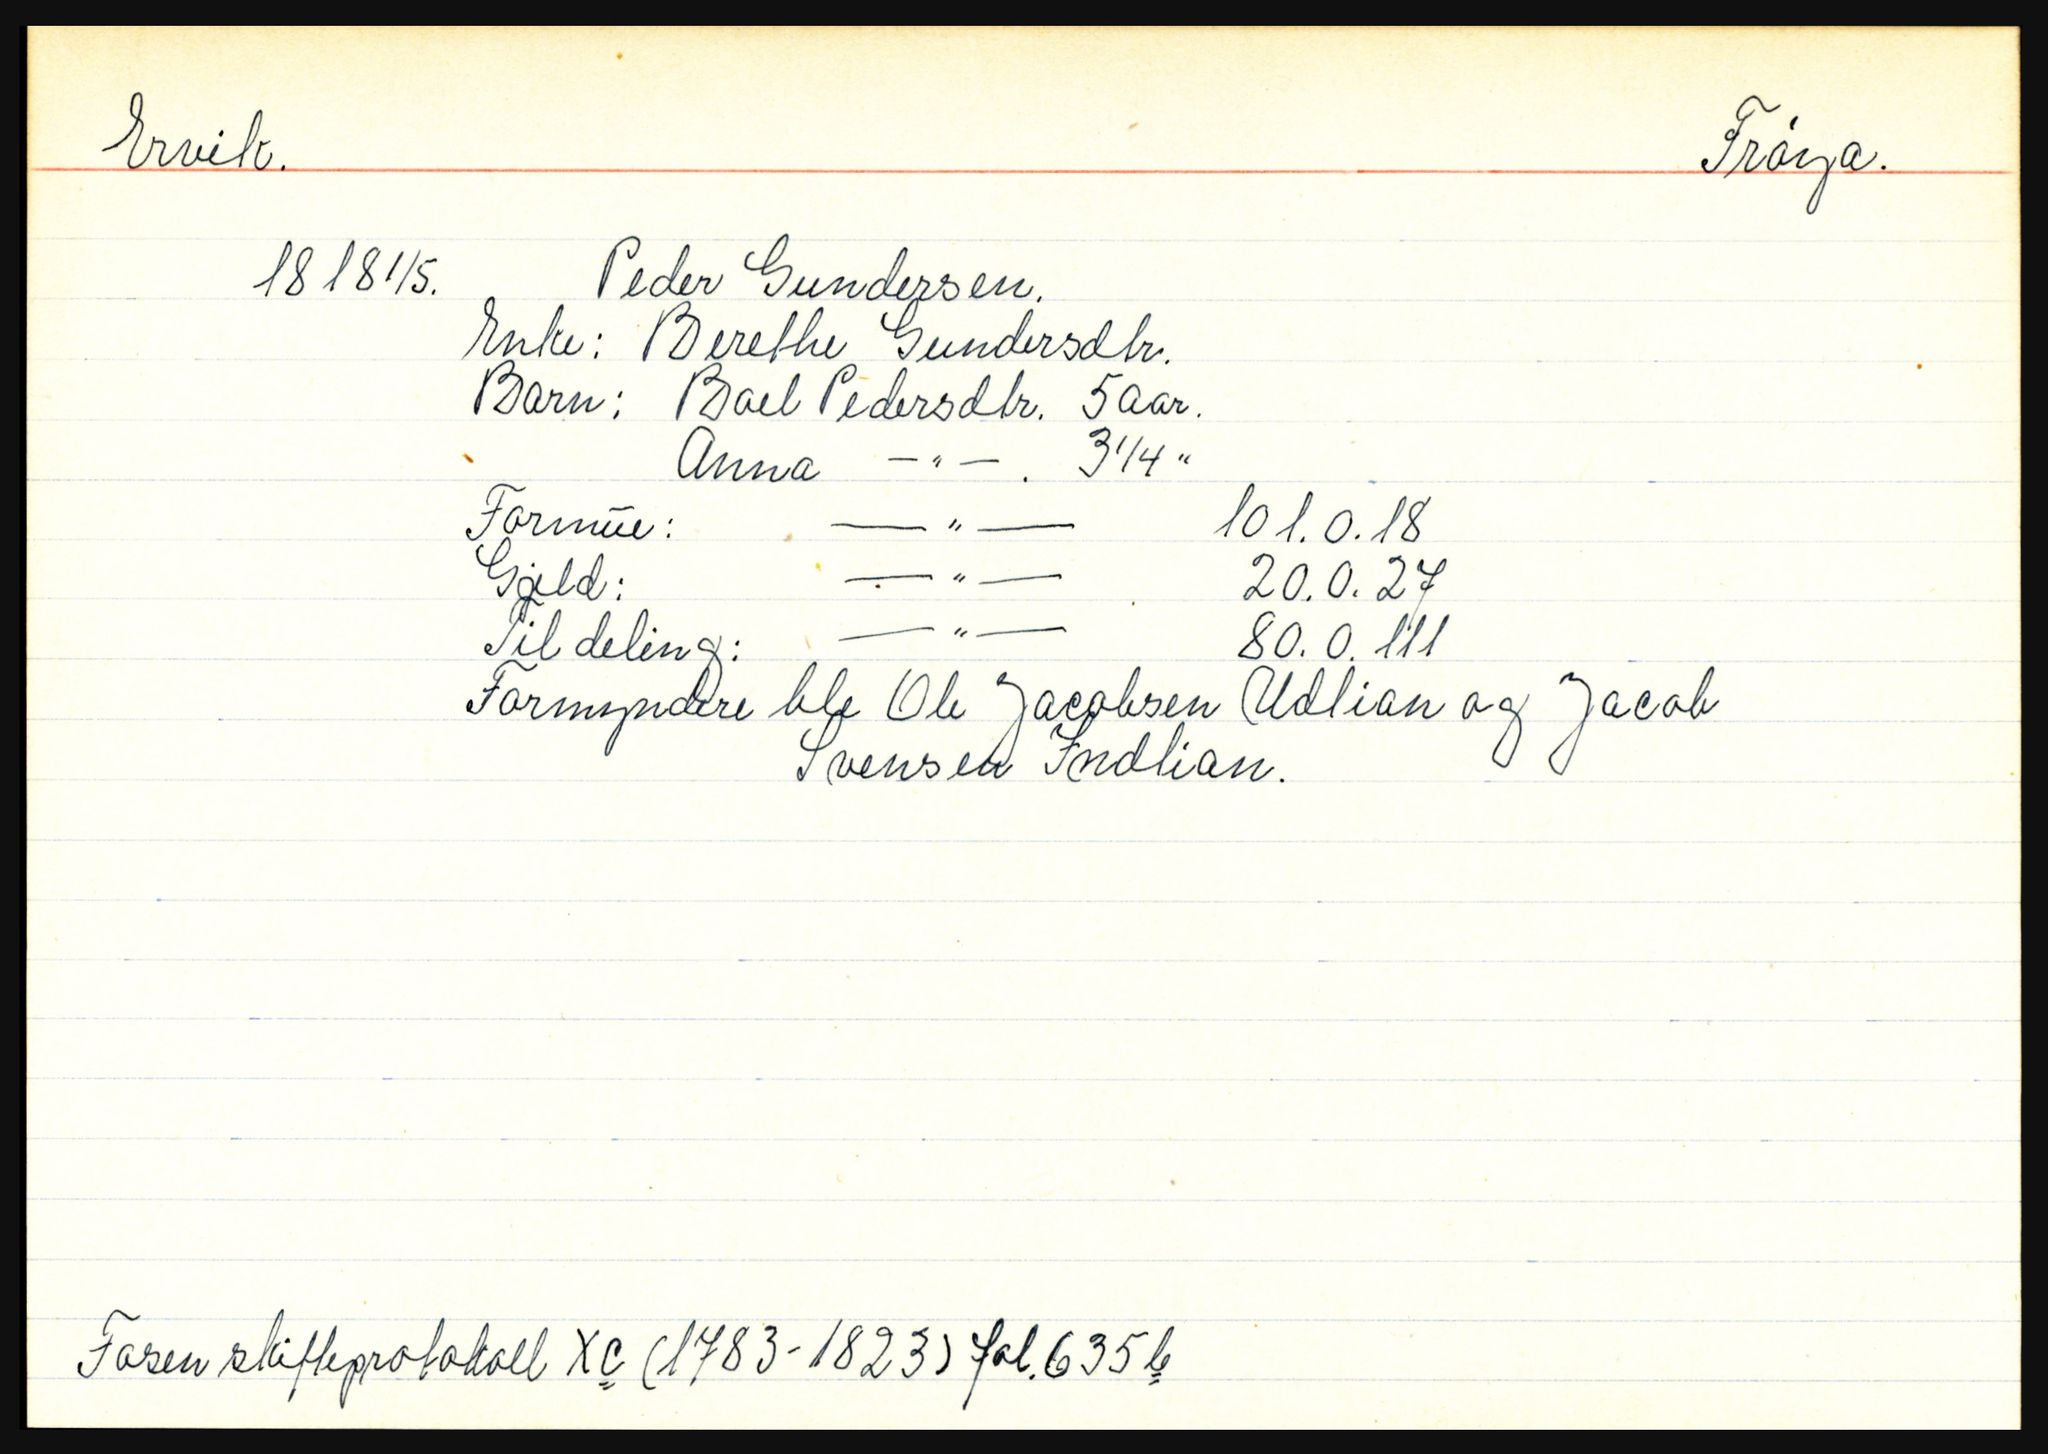 Ervik. Frøya.
1818 1/5. Peder Gundersen.
Enke: Berethe Gundersdtr.
Barn: Boel Pedersdtr. 5 aar.
Anna —"—. 3 1/4 "
Formue: —"— 101.0.18
Gjeld: —"— 20.0.27
Til deling: —"— 80.0.111
Formyndere ble Ole Jacobsen Udlian og Jacob
Svensen Indlian.
Fosen skifteprotokoll Xc (1783-1823) fol. 635b